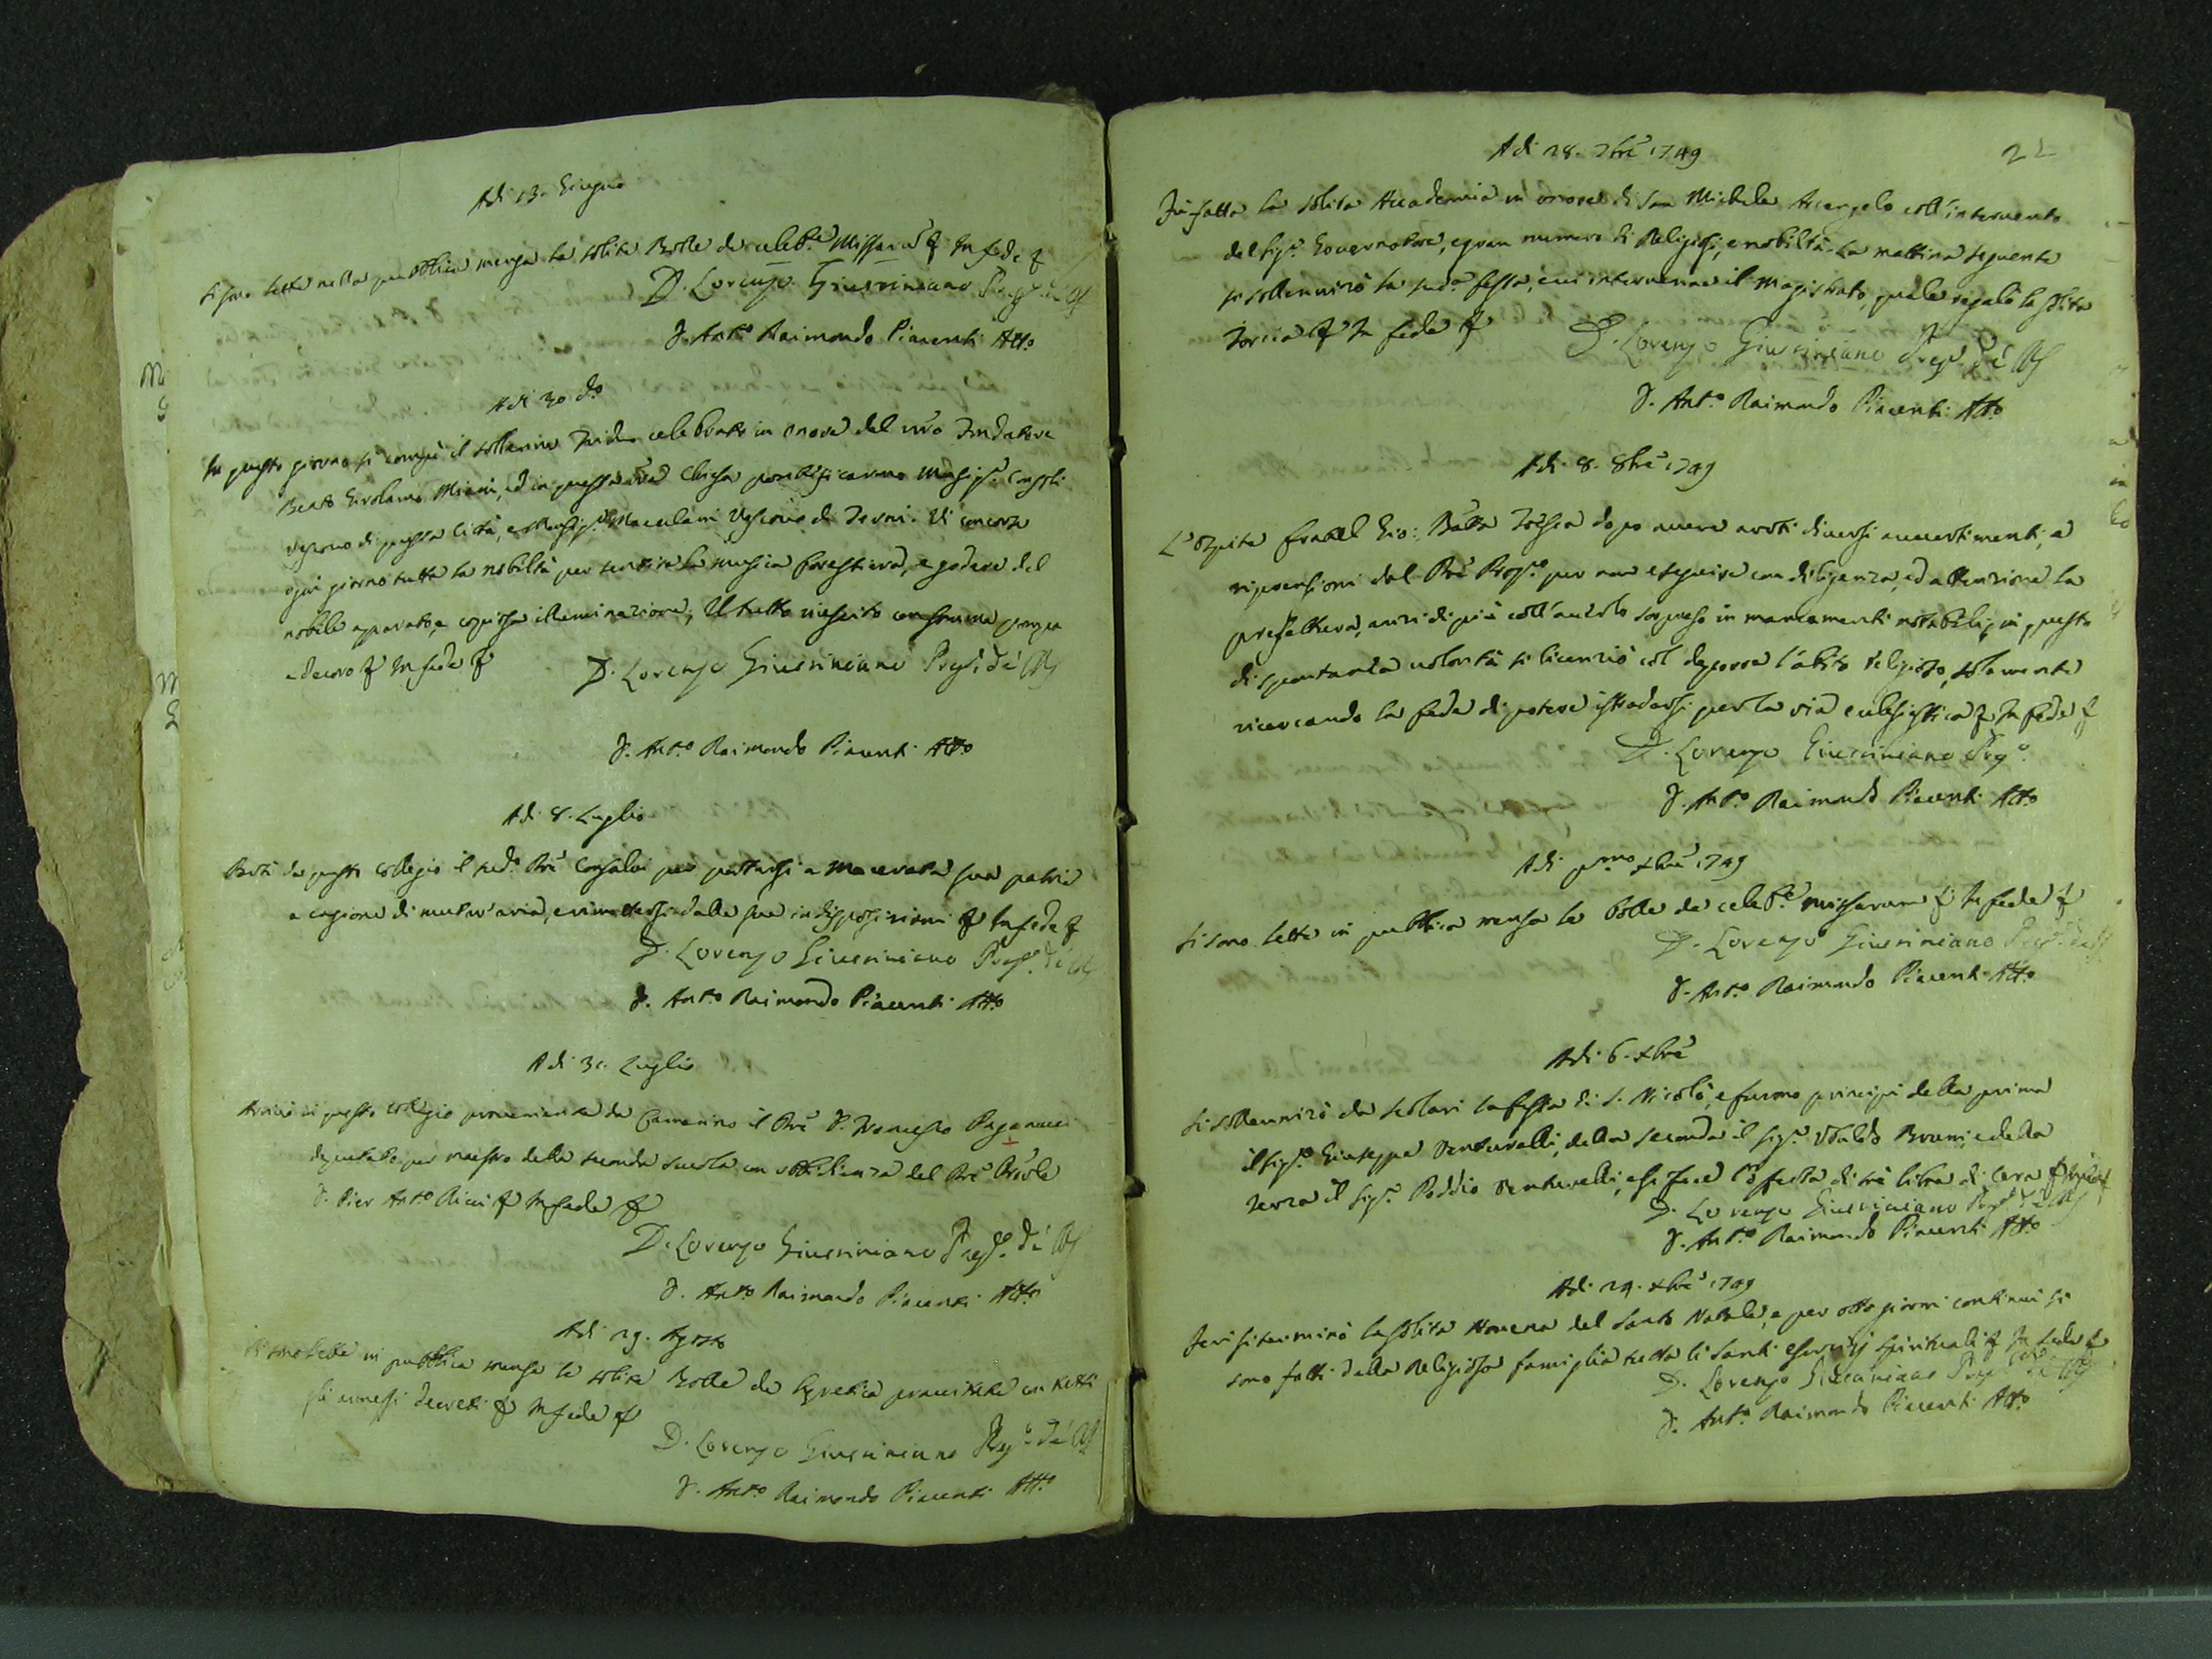 Adi 13. Giugno
Si sono lette nella pubblica mensa le solite Bolle de celebne Missarum & In fede &
D. Lorenzo Giustiniano Prepto
D. Anto Raimondo Piacenti Atto
Adi 30 do
In questo giorno si compì il sollenne Triduo celebrato in onore del nro Fondatore
Beato Girolamo Miani, ed in questa nra Chiesa pontificarono Monsigr
Vescovo di questa Città, e Monsigr Maculani Vescovo di Terni. Vi concorse
ogni giorno tutta la nobiltà per sentire la musica forestiera, e godere del
nobile apparato, e copiosa illuminazione, Il tutto riescito con somma pompa
e decoro & In fede &
D. Lorenzo Giustiniano Prepto
D. Anto Raimondo Piacenti Atto
Adi 8. Luglio
Partì da questo Collegio il sudo Pre Consalvi per portarsi a Macerata sua patria
a cagione di mutar aria, e rimettersi dalle sue indisposizioni & In fede &
D. Lorenzo Giustiniano Prepo
D. Anto Raimondo Piacenti Atto
Adi 31 Luglio
Arrivò in questo collegio proveniente da Camerino il Pre D. Francesco Paganucci
deputato per maestro della seconda scuola con obbidienza del Pre Provle
D. Pier Anto Ricci & In fede &
D. Lorenzo Giustiniano Prepo
D. Anto Raimondo Piacenti Atto
Adi 29. Agosto
Si sono lette in pubblica mensa le solite Bolle de hæretica pravitate con tutti
gli annessi decreti & In fede &
D. Lorenzo Giustiniano Prepo
D. Anto Raimondo Piacenti Atto
22
Adi 28. 7bre 1749
Fù fatta la solita Accademia in onore di San Michele Arcangelo coll'intervento
del Sigr Governatore, e gran numero di Religiosi, e nobiltà. La mattina seguente
si sollennizò la suda festa, cui intervenne il Magistrato, quale regalò le solite
torcie & In fede &
D. Lorenzo Giustiniano Prepo
D. Anto Raimondo Piacenti Atto
Adi 8. 8bre 1749
L'ospite fratel Gio: Batta dopo avere avuti diversi avvertimenti, e
riprensioni dal Pre Prepo per non eseguire con diligenza, ed attenzione la
di spontanea volontà si licenziò col deporre l'abito religioso, solamente
ricercando la fede di potere istradarsi per la via ecclesiastica & In fede &
D. Lorenzo Giustiniano Prepo
D. Anto Raimondo Piacenti Atto
Adi pmo xbre 1749
Si sono lette in pubblica mensa le bolle de celebne missarum & In fede &
D. Lorenzo Giustiniano Prepo
D. Anto Raimondo Piacenti Atto
Adi 6. xbre
Si sollennizò da scolari la festa di S. Nicolò, e furono principi della prima
il Sigr Giuseppe Venturelli, della seconda il sigr Ubaldo Bruni, e della
terza il Sigr Poddio Venturelli, e si fece l'offerta di trè libre di cera & In fede &
D. Lorenzo Giustiniano Prepo
D. Anto Raimondo Piacenti Atto
Adi 24. xbre 1749
Jeri si terminò la solita Novena del Santo Natale, e per otto giorni continui si
sono fatti dalla Religiosa famiglia tutta li santi esercizj spirituali & In fede &
D. Lorenzo Giustiniano Prepo
D. Anto Raimondo Piacenti Atto